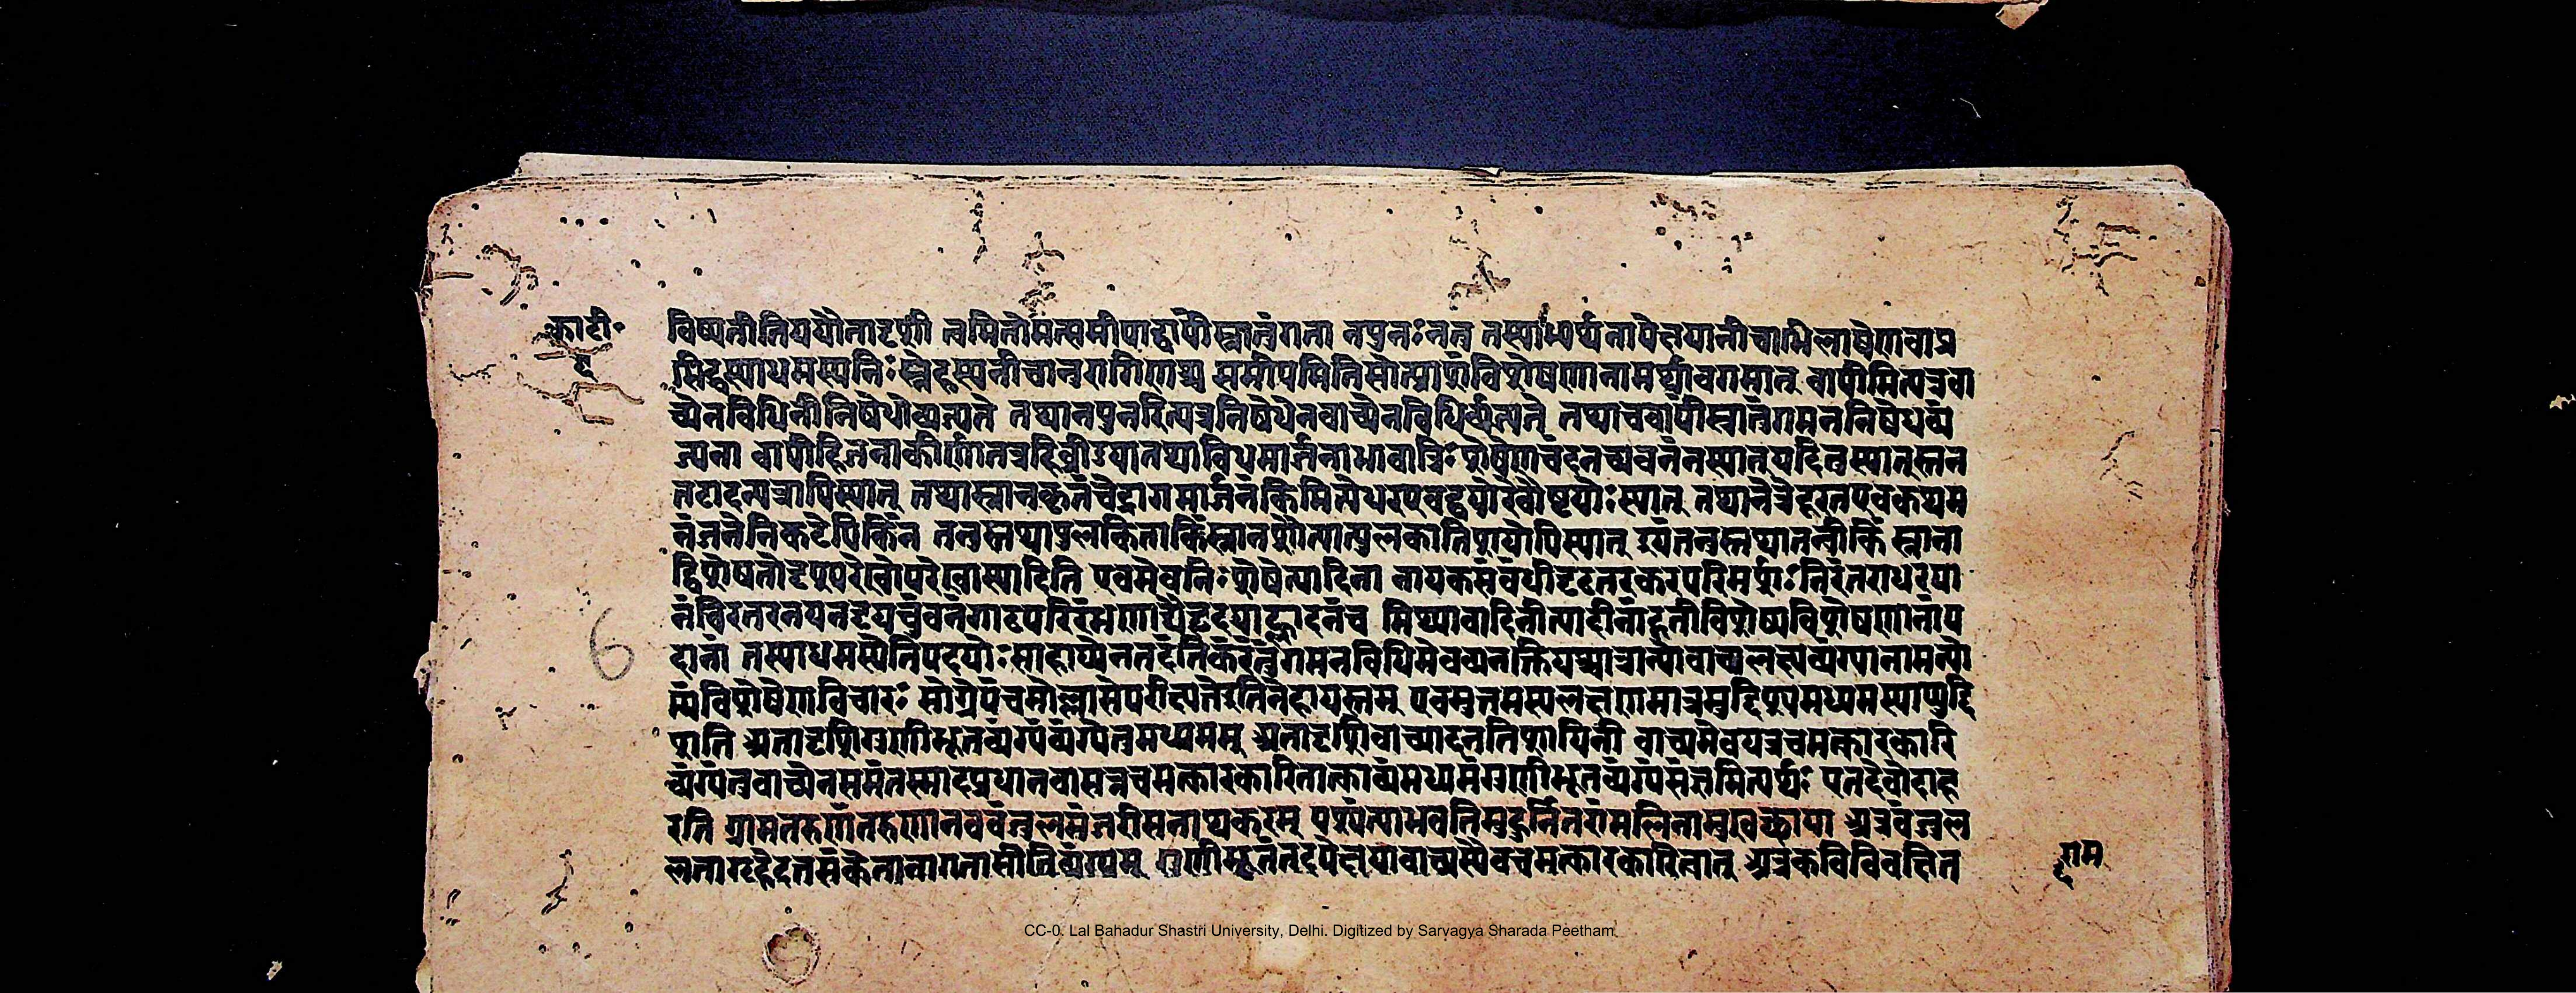 का टी॰
विष्यतीतिययौतादृशी त्वमितोमत्समीपाद्वापींस्नातुंगता नपुनःननु तस्याधमर्थनापेक्षयानीचाभिलाषेणवाप्र
सिद्धस्याधमस्यपतिः स्नेहस्यनीचानुरागिणश्च समीपमितिसोत्प्राशंविशेषणानामर्थावगमात् वापीमित्यत्रवा
च्येनविधिनानिषेधोव्यज्यते तथानपुनरित्यत्रनिषेधेनवाच्येनविधिर्व्यज्यते तथाचवापींस्नातुंगमननिषेधव्यं
ज्यता वापीहिजनाकीर्णातत्रहिव्रीडयातथाविधमार्जनाभावान्निःशेषेणचंदनच्यवनंनस्यात्यदितुस्यात्स्तन
तटादन्यत्रापिस्यात् तथास्नानकृतंचेद्रागमार्जनंकिमित्यधरएवद्वयोरवौष्ठयोःस्यात् तथानेत्रेदूरतएवकथम
नंजनेनिकटेपिकिंन तनुस्तथापुलकिताकिंस्नानशैत्यात्पुलकातिशयोपिस्यात् इयंतनुस्तथातन्वीकिं स्नाना
द्विशेषतोदृश्यपरेवोपरेवास्यादिति एवमेवनिःशेषेत्यादिना नायकसंबंधीदृढतरकरपरिमर्शःनिरंतराधरपा
नंविरतरनयनदृयचुंबनंगाढपरिरंभणाद्यैर्हृदयाह्लादनंच मिथ्यावादिनीत्यादीनांदूतीविशेष्यविशेषणानांप
दानां तस्याधमस्येतिपदयोःसाहाय्येनतदंतिकंरंतुंगमनविधिमेवव्यनक्तियथाचात्रान्योवाच्यलक्ष्यव्यंग्यानामन्यो
न्यंविशेषेणविचारः सोग्रेपंचमोल्लासेपरीक्ष्यतेइतिनेहायस्तम् एवमुत्तमस्यलक्षणमात्रमुद्दिश्यमध्यमस्याप्युद्दि
शति अतादृशिगुणीभूतव्यंग्यंव्यंग्येतुमध्यमम् अतादृशिवाच्यादनतिशायिनी वाच्यमेवयत्रचमत्कारकारि
व्यंग्यंतुवाच्येनसमंतस्मादप्रधानवासन्नचमत्कारकारितत्काव्यंमध्यमंगुणीभूतव्यंग्यसंज्ञमित्यर्थः एतदेवोदाह
रति ग्रामतरुणंतरुण्यानववंजुलमंजरीसनाथकरम् पश्यंत्याभवतिमुहुर्नितरांमलिनामुखच्छाया अत्रवंजुल
लतागृहेदत्तसंकेतानागतासीतिव्यंग्यम् गुणीभूतंतदपेक्षयावाच्यस्यैवचमत्कारकारित्वात् अत्रकविविवक्षित
राम
6
CC-0. Lal Bahadur Shastri University, Delhi. Digitized by Sarvagya Sharada Peetham.